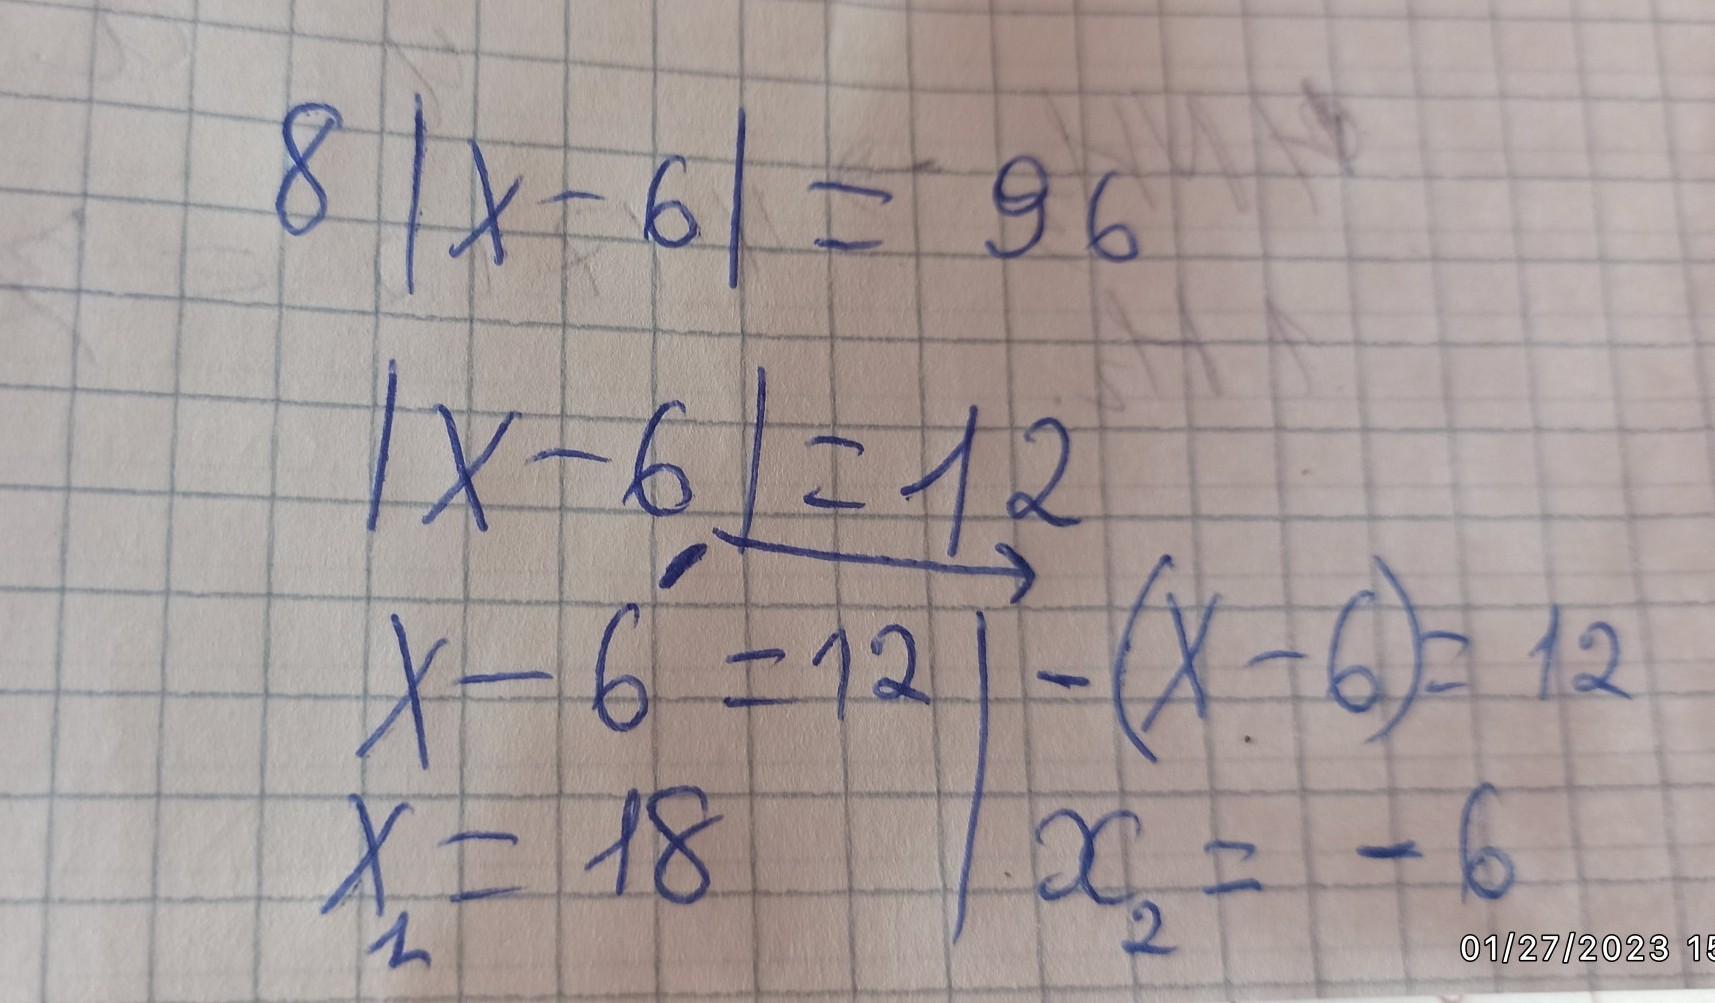 8 |x - 6| = 96
|x - 6| = 12
x - 6 = 12 | -(x - 6) = 12
x₁ = 18 | x₂ = -6
01/27/2023 15